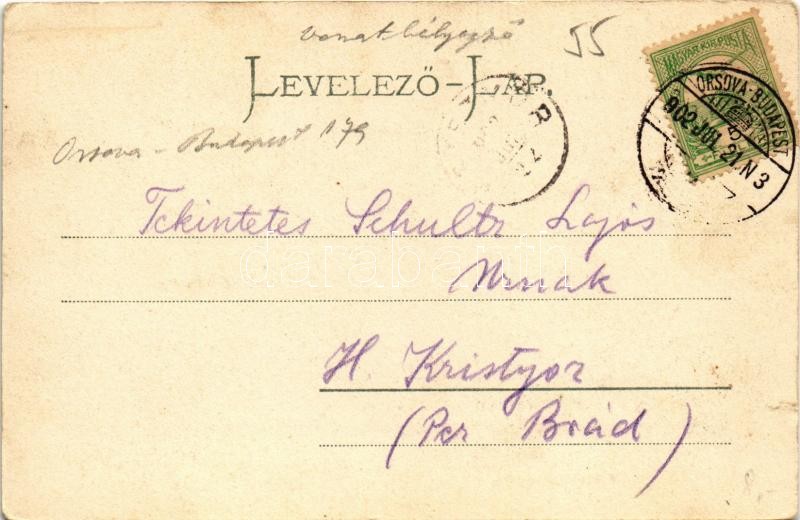 vonatbélyegző
55
LEVELEZŐ-LAP.
MAGYAR KIR. POSTA
ORSOVA-BUDAPEST
902 JUL 21 N 3
Orsova - Budapest 179
Tekintetes Schultz Lajos
Urnak
H. Kristyor
(Per Brád)
darabanth
8,-